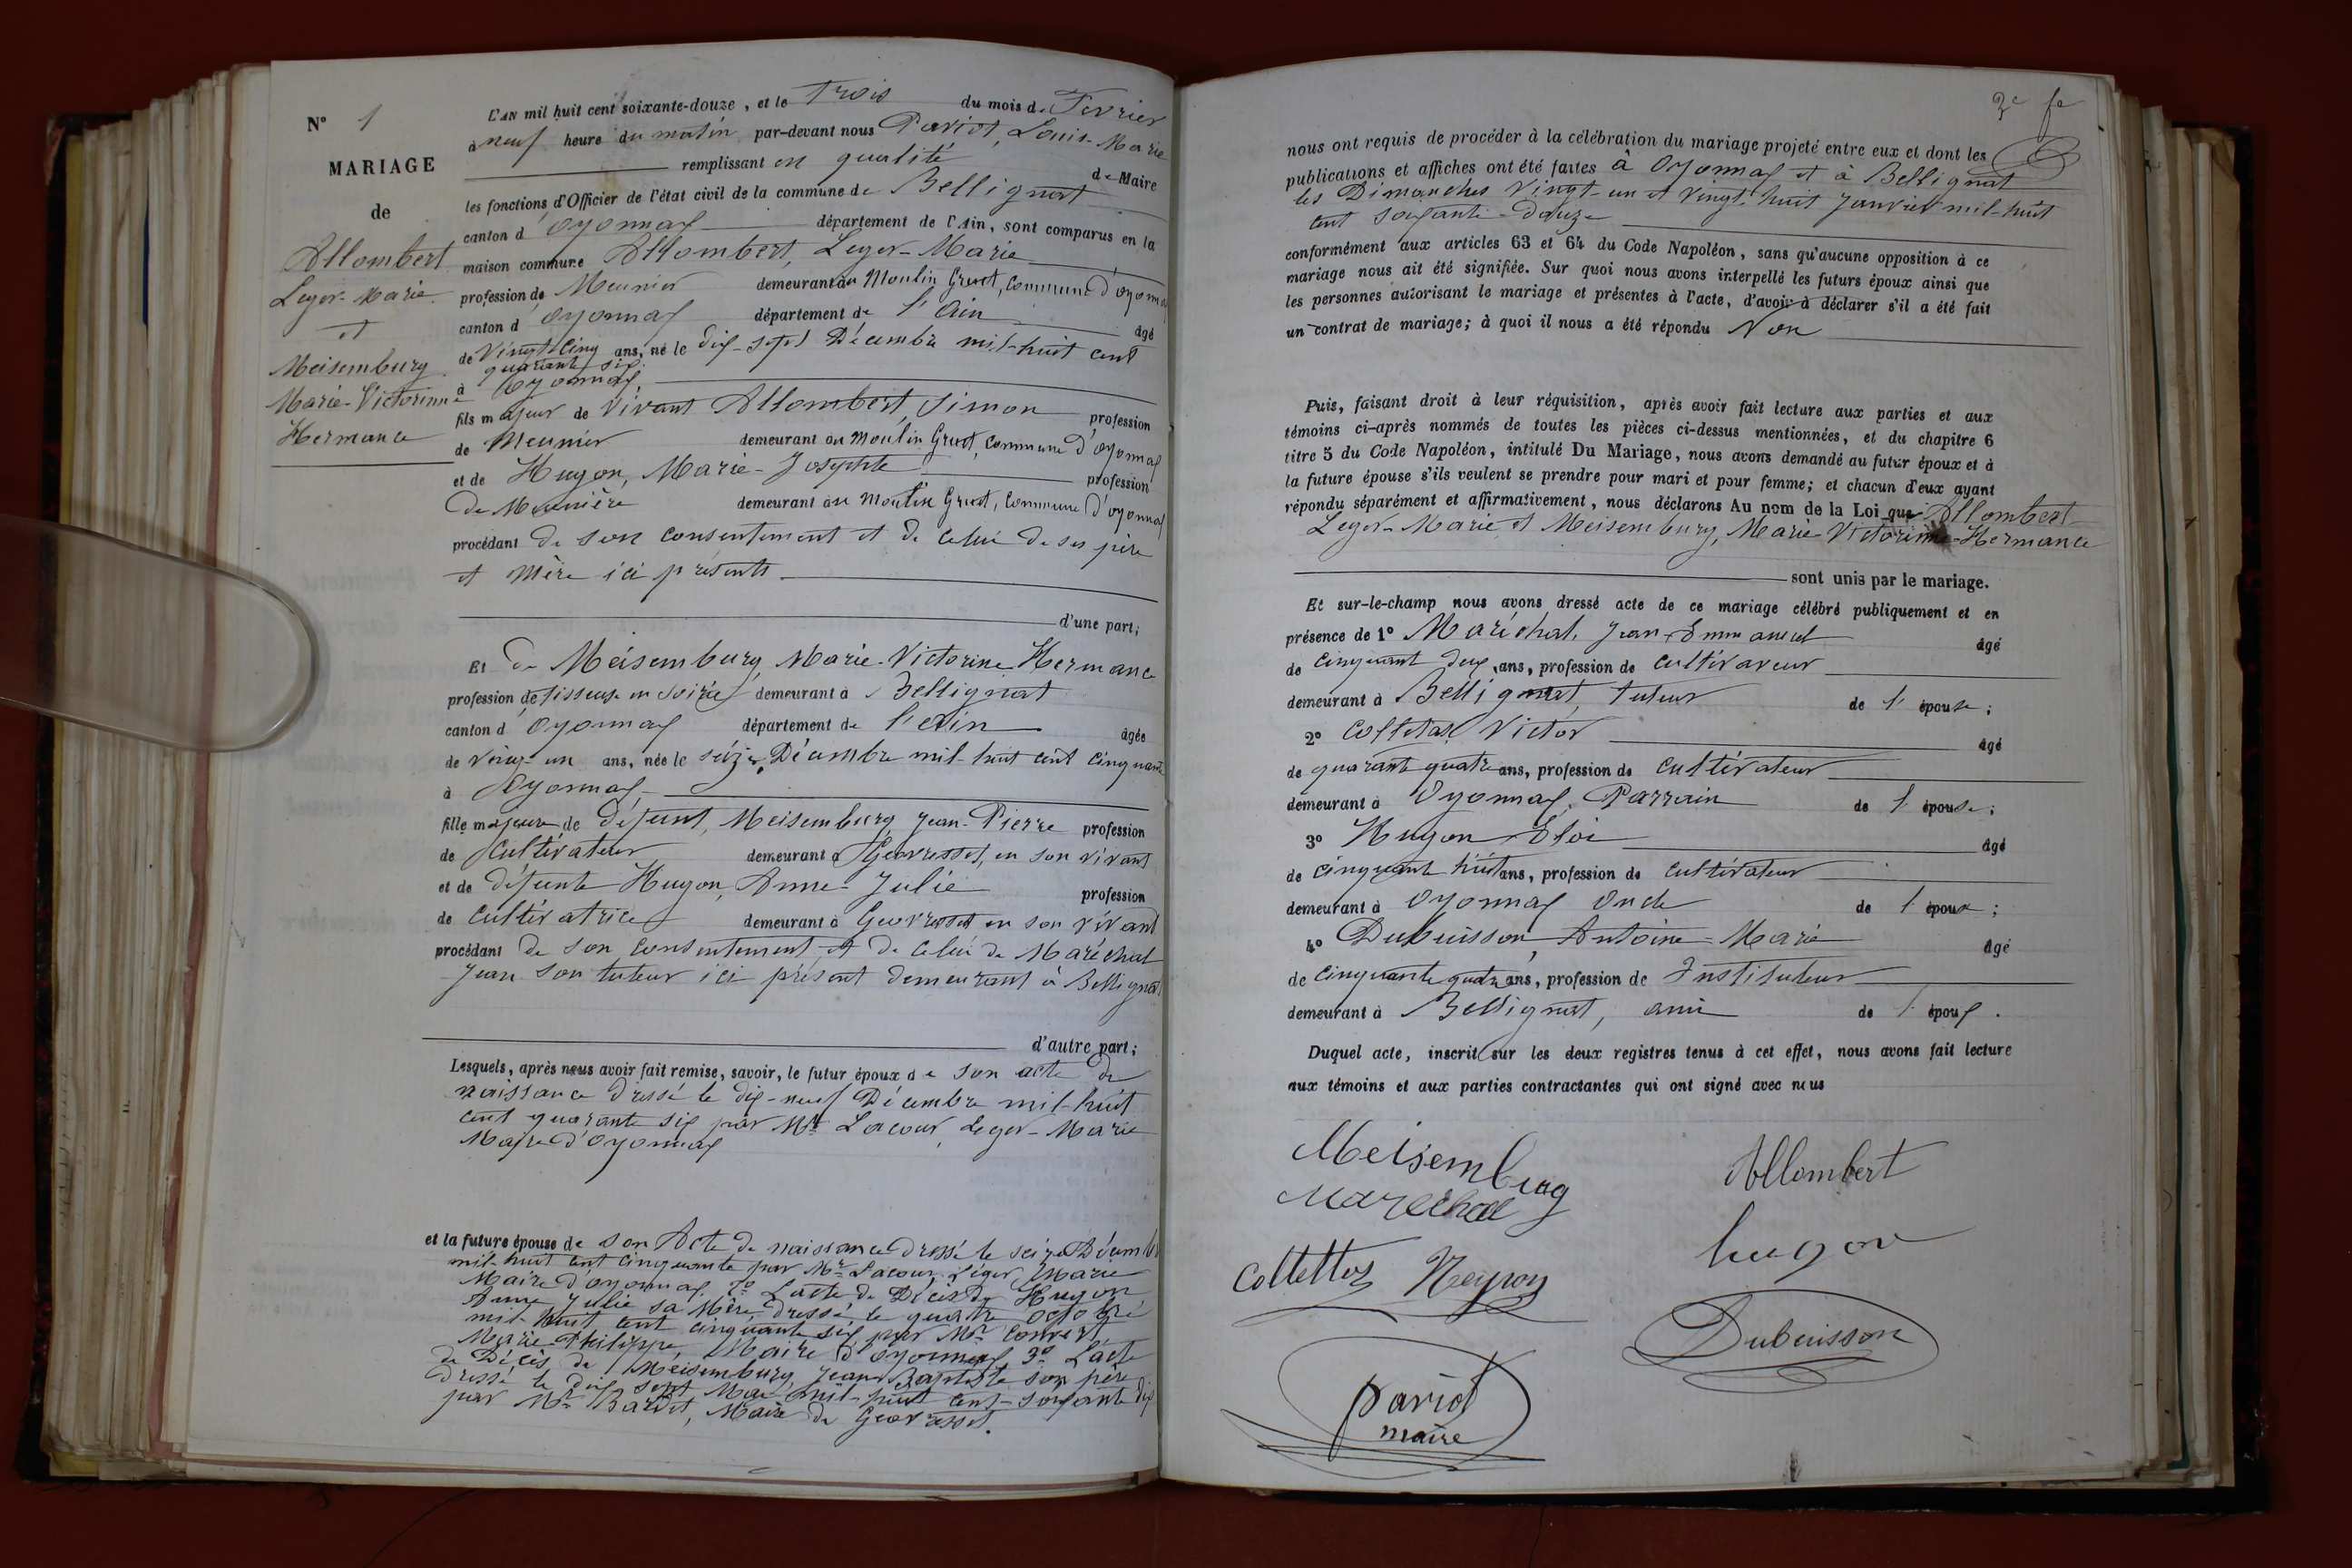 N° 1
MARIAGE
de
Allombert
Leger-Marie
et
Meisemburg
Marie-Victorinne
Hermance
L'AN mil huit cent soixante-douze, et le Trois du mois de Fevrier
à neuf heure du matin par-devant nous Pariot, Louis-Marie
remplissant en qualité de Maire
les fonctions d'Officier de l'état civil de la commune de Bellignat
canton d'Oyonnax département de l'Ain, sont comparus en la
maison commune Allombert, Leger-Marie
profession de Meunier demeurant au Moulin Gruet, Commune d'Oyonnax
canton d'Oyonnax département de l'Ain âgé
de Vingt-cinq ans, né le dix-sept Décembre mil-huit cent
quarante six
à Oyonnax
fils majeur de Vivant Allombert, Simon profession
de Meunier demeurant au Moulin Gruet, Commune d'Oyonnax
et de Hugon, Marie-Josephte profession
de Meunière demeurant au Moulin Gruet, Commune d'Oyonnax
procédant de son consentement et de celui de ses père
et Mère ici présents
d'une part;
Et de Meisemburg, Marie-Victorine Hermance
profession de tisseuse en soirie demeurant à Bellignat
canton d'Oyonnax département de l'Ain âgée
de vingt-un ans, née le seize Décembre mil-huit cent cinquante
à Oyonnax
fille majeure de défunt, Meisemburg Jean-Pierre profession
de Cultivateur demeurant à Géovresset, en son vivant
et de défunte Hugon, Anne-Julie profession
de Cultivatrice demeurant à Geovresset en son vivant
procédant de son consentement, et de celui de Maréchal
Jean son tuteur ici présent demeurant à Bellignat
d'autre part;
Lesquels, après nous avoir fait remise, savoir, le futur époux de son acte de
naissance dressé le dix-neuf Décembre mil-huit
cent quarante six par Mr Lacour, Leger-Marie
Maire d'Oyonnax
et la future épouse de son Acte de naissance dressé le seize Décembre
mil-huit cent cinquante par Mr Lacour, Léger, Marie
Maire d'Oyonnax, 2° L'acte de Décès de Hugon
Anne Julie sa Mère, dressé le quatre octobre
mil-huit cent cinquante six par Mr Convert,
Marie Philippe, Maire d'Oyonnax, 3° L'acte
de Décès de Meisemburg, Jean Baptiste son père
dressé le dix sept Mai mil-huit cent-soixante dix
par Mr Bardet, Maire de Geovresset.
2e fe
nous ont requis de procéder à la célébration du mariage projeté entre eux et dont les
publications et affiches ont été faites à Oyonnax et à Bellignat
les Dimanches Vingt-un et Vingt-huit Janvier mil-huit
cent soixante-Douze
conformément aux articles 63 et 64 du Code Napoléon, sans qu'aucune opposition à ce
mariage nous ait été signifiée. Sur quoi nous avons interpellé les futurs époux ainsi que
les personnes autorisant le mariage et présentes à l'acte, d'avoir à déclarer s'il a été fait
un contrat de mariage; à quoi il nous a été répondu Non
Puis, faisant droit à leur réquisition, après avoir fait lecture aux parties et aux
témoins ci-après nommés de toutes les pièces ci-dessus mentionnées, et du chapitre 6
titre 5 du Code Napoléon, intitulé Du Mariage, nous avons demandé au futur époux et à
la future épouse s'ils veulent se prendre pour mari et pour femme; et chacun d'eux ayant
répondu séparément et affirmativement, nous déclarons Au nom de la Loi que Allombert
Leger-Marie et Meisemburg, Marie-Victorinne-Hermance
sont unis par le mariage.
Et sur-le-champ nous avons dressé acte de ce mariage célébré publiquement et en
présence de 1° Maréchal, Jean-Emmanuel âgé
de cinquant deux ans, profession de cultivateur
demeurant à Bellignat, tuteur de l'épouse;
2° Colletas Victor âgé
de quarant quatre ans, profession de cultivateur
demeurant à Oyonnax, Parrain de l'épouse;
3° Hugon Eloi âgé
de cinquante huit ans, profession de cultivateur
demeurant à Oyonnax Oncle de l'époux;
4° Dubuisson Antoine-Marie âgé
de cinquante quatre ans, profession de Instituteur
demeurant à Bellignat, ami de l'époux.
Duquel acte, inscrit sur les deux registres tenus à cet effet, nous avons fait lecture
aux témoins et aux parties contractantes qui ont signé avec nous
Meisemburg Allombert
Marechal
hugon
Collettaz
Dubuisson
Pariot
maire